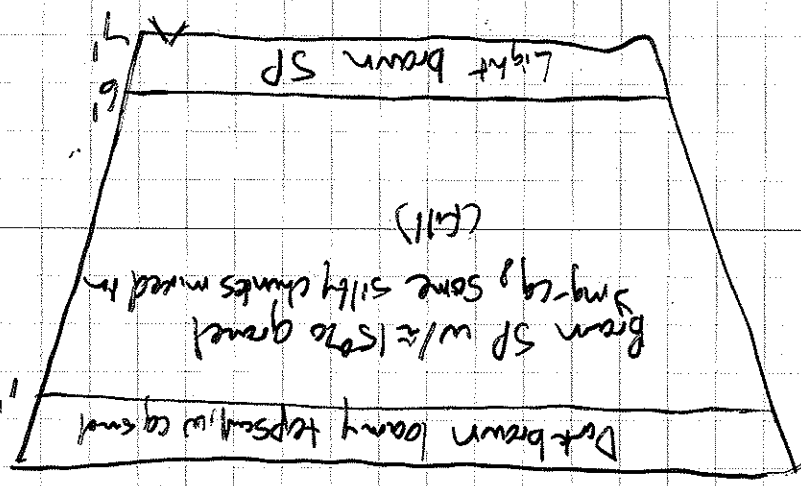 Dark brown loamy topsoil, w cg sand
1'
Brown SP w/≈15% gravel
mg-cg, some silty chunks mixed in
(fill)
6'
Light brown SP
7'